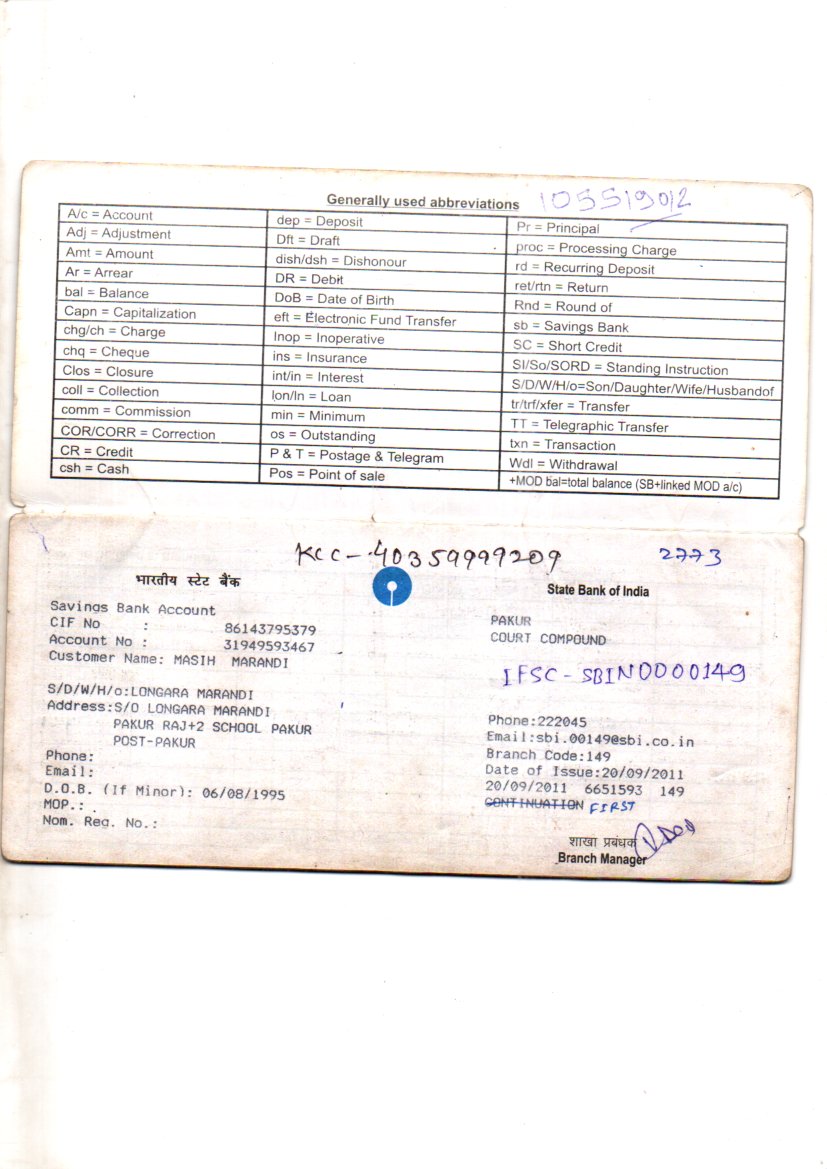 Generally used abbreviations 105519012
A/c = Account
Adj = Adjustment
Amt = Amount
Ar = Arrear
bal = Balance
Capn = Capitalization
chg/ch = Charge
chq = Cheque
Clos = Closure
coll = Collection
comm = Commission
COR/CORR = Correction
CR = Credit
csh = Cash
dep = Deposit
Dft = Draft
dish/dsh = Dishonour
DR = Debit
DoB = Date of Birth
eft = Electronic Fund Transfer
Inop = Inoperative
ins = Insurance
int/in = Interest
lon/ln = Loan
min = Minimum
os = Outstanding
P & T = Postage & Telegram
Pos = Point of sale
Pr = Principal
proc = Processing Charge
rd = Recurring Deposit
ret/rtn = Return
Rnd = Round of
sb = Savings Bank
SC = Short Credit
SI/So/SORD = Standing Instruction
S/D/W/H/o=Son/Daughter/Wife/Husbandof
tr/trf/xfer = Transfer
TT = Telegraphic Transfer
txn = Transaction
Wdl = Withdrawal
+MOD bal=total balance (SB+linked MOD a/c)
KCC-40359999209 2773
भारतीय स्टेट बैंक
State Bank of India
Savings Bank Account
CIF No : 86143795379
Account No : 31949593467
Customer Name: MASIH MARANDI
S/D/W/H/o:LONGARA MARANDI
Address:S/O LONGARA MARANDI
PAKUR RAJ+2 SCHOOL PAKUR
POST-PAKUR
Phone:
Email:
D.O.B. (If Minor): 06/08/1995
MOP.:
Nom. Reg. No.:
PAKUR
COURT COMPOUND
IFSC - SBIN0000149
Phone:222045
Email:sbi.00149@sbi.co.in
Branch Code:149
Date of Issue:20/09/2011
20/09/2011 6651593 149
CONTINUATION FIRST
शाखा प्रबंधक
Branch Manager